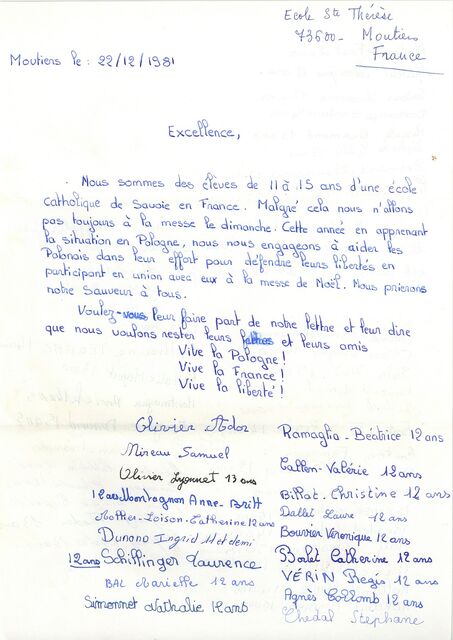 Ecole Ste Thérèse
73600 - Moutiers
France
Moutiers le : 22/12/1981
Excellence,
Nous sommes des élèves de 11 à 15 ans d'une école
catholique de Savoie en France. Malgré cela nous n'allons
pas toujours à la messe le dimanche. Cette année en apprenant
la situation en Pologne, nous nous engageons à aider les
Polonais dans leur effort pour défendre leurs libertés en
participant en union avec eux à la messe de Noël. Nous prierons
notre Sauveur à tous.
Voulez-vous leur faire part de notre lettre et leur dire
que nous voulons rester leurs frères et leurs amis
Vive la Pologne !
Vive la France !
Vive la liberté !
Olivier Ador
Mireau Samuel
Olivier Lyonnet 13 ans
Montagnon Anne-Britt
Loison-Catherine 12 ans
Dunond Ingrid 11 et demi
12 ans Schiffinger Laurence
BAL Marielle 12 ans
Simonnet Nathalie 12 ans
Ramaglia - Béatrice 12 ans
Callon-Valérie 12 ans
Billat - Christine 12 ans
Dallet Laure 12 ans
Bouvier Véronique 12 ans
Borlet Catherine 12 ans
VÉRIN Régis 12 ans
Agnès Collomb 12 ans
Chedal Stéphane